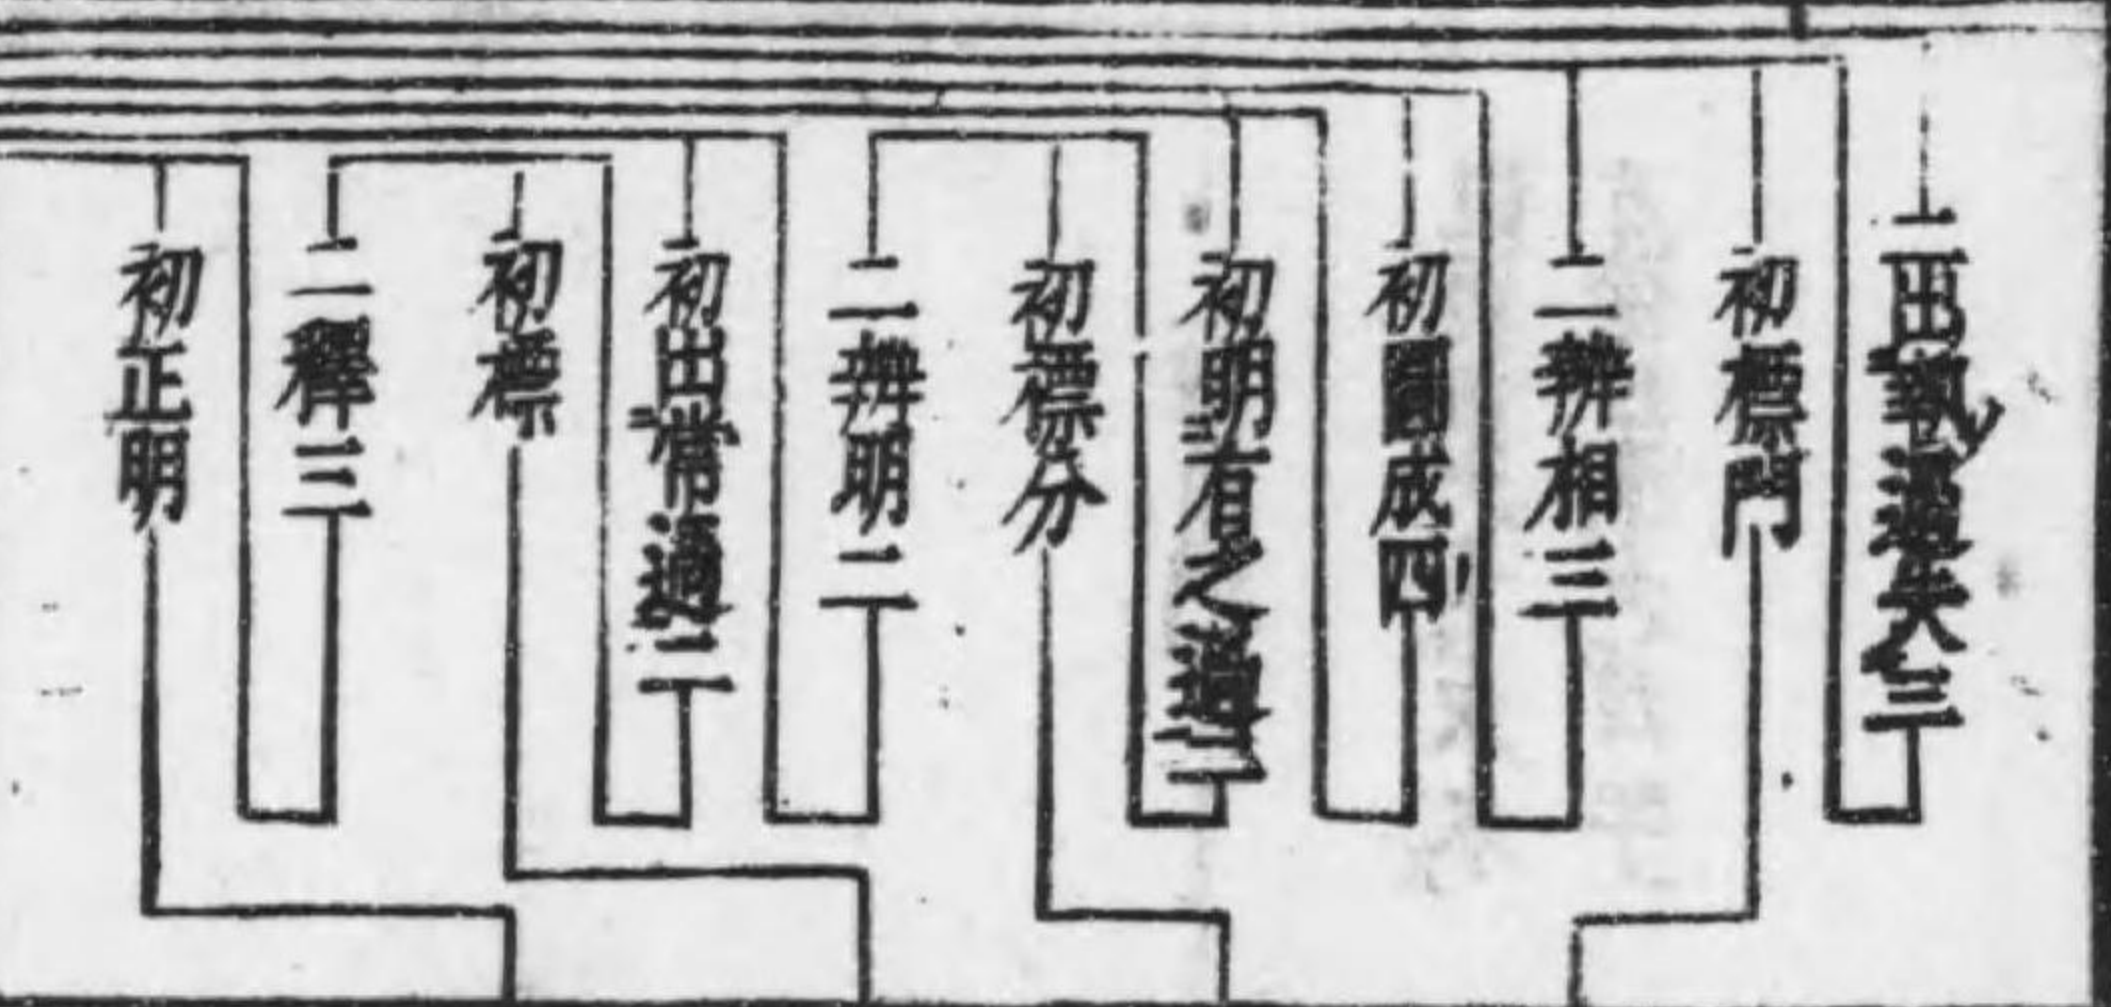 二出執過失三
初標門
二辨相三
初圓成四
初明有之過二
初標分
二辨明二
初出常過二
初標
二釋三
初正明